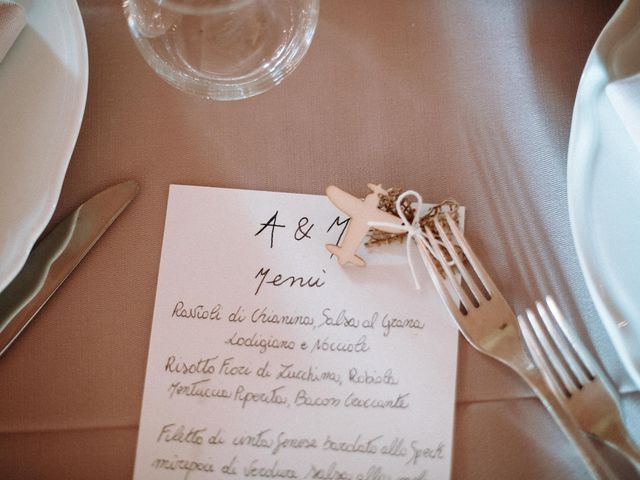 A & M
Menù
Ravioli di Chianina, Salsa al Grana
Lodigiano e Nocciole
Risotto Fiori di Zucchina, Robiola
Mentuccia Piperita, Bacon Croccante
Filetto di cinta Senese bardato allo Speck
di Verdura Salsa